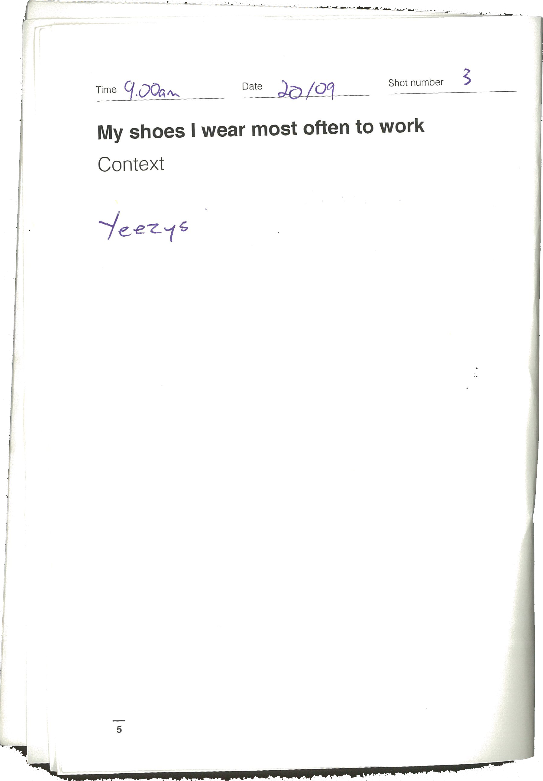 Time 9.00am Date 20/09 Shot number 3
My shoes I wear most often to work
Context
Yeezys
5